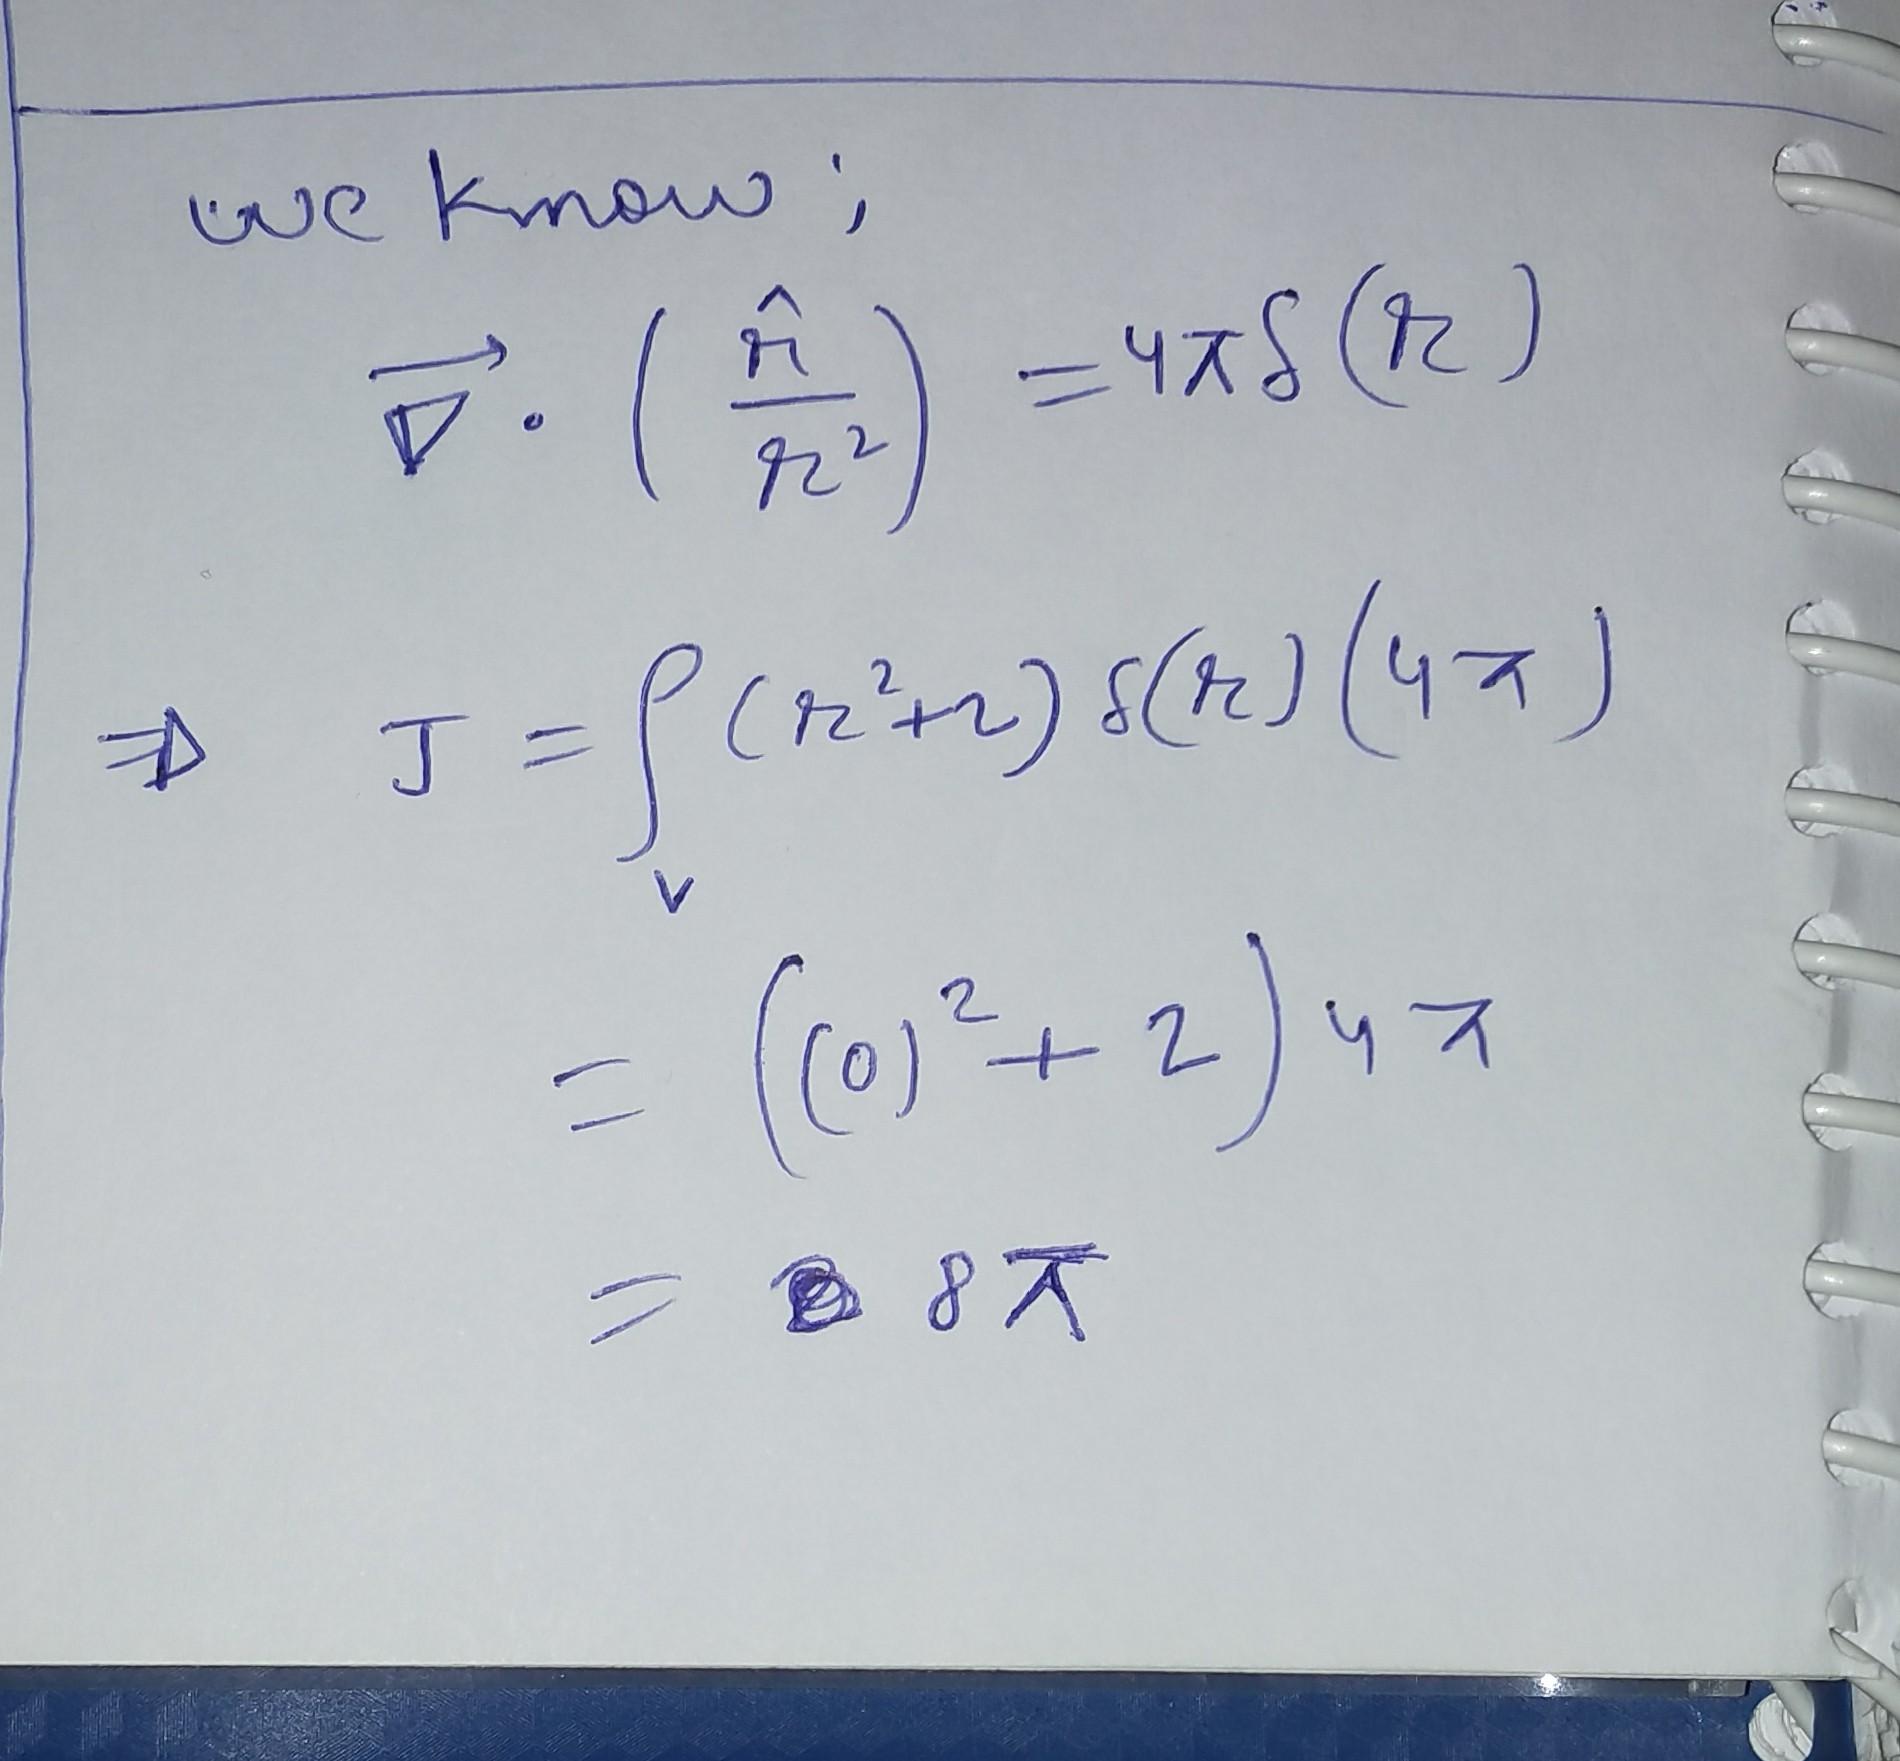 we know;
∇⃗ · ( r̂ / r² ) = 4π δ(r)
⇒ J = ∫_V (r²+2) δ(r) (4π)
= ((0)² + 2) 4π
= 8π